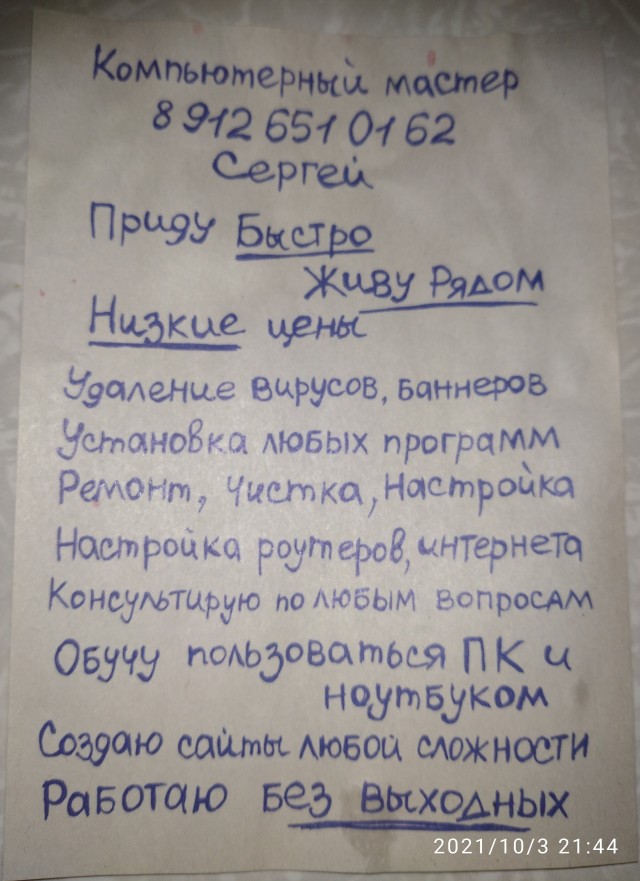 Компьютерный мастер
8 912 651 01 62
Сергей
Приду Быстро
Живу Рядом
Низкие цены
Удаление вирусов, баннеров
Установка любых программ
Ремонт, Чистка, Настройка
Настройка роутеров, интернета
Консультирую по любым вопросам
Обучу пользоваться ПК и
ноутбуком
Создаю сайты любой сложности
Работаю без выходных
2021/10/3 21:44